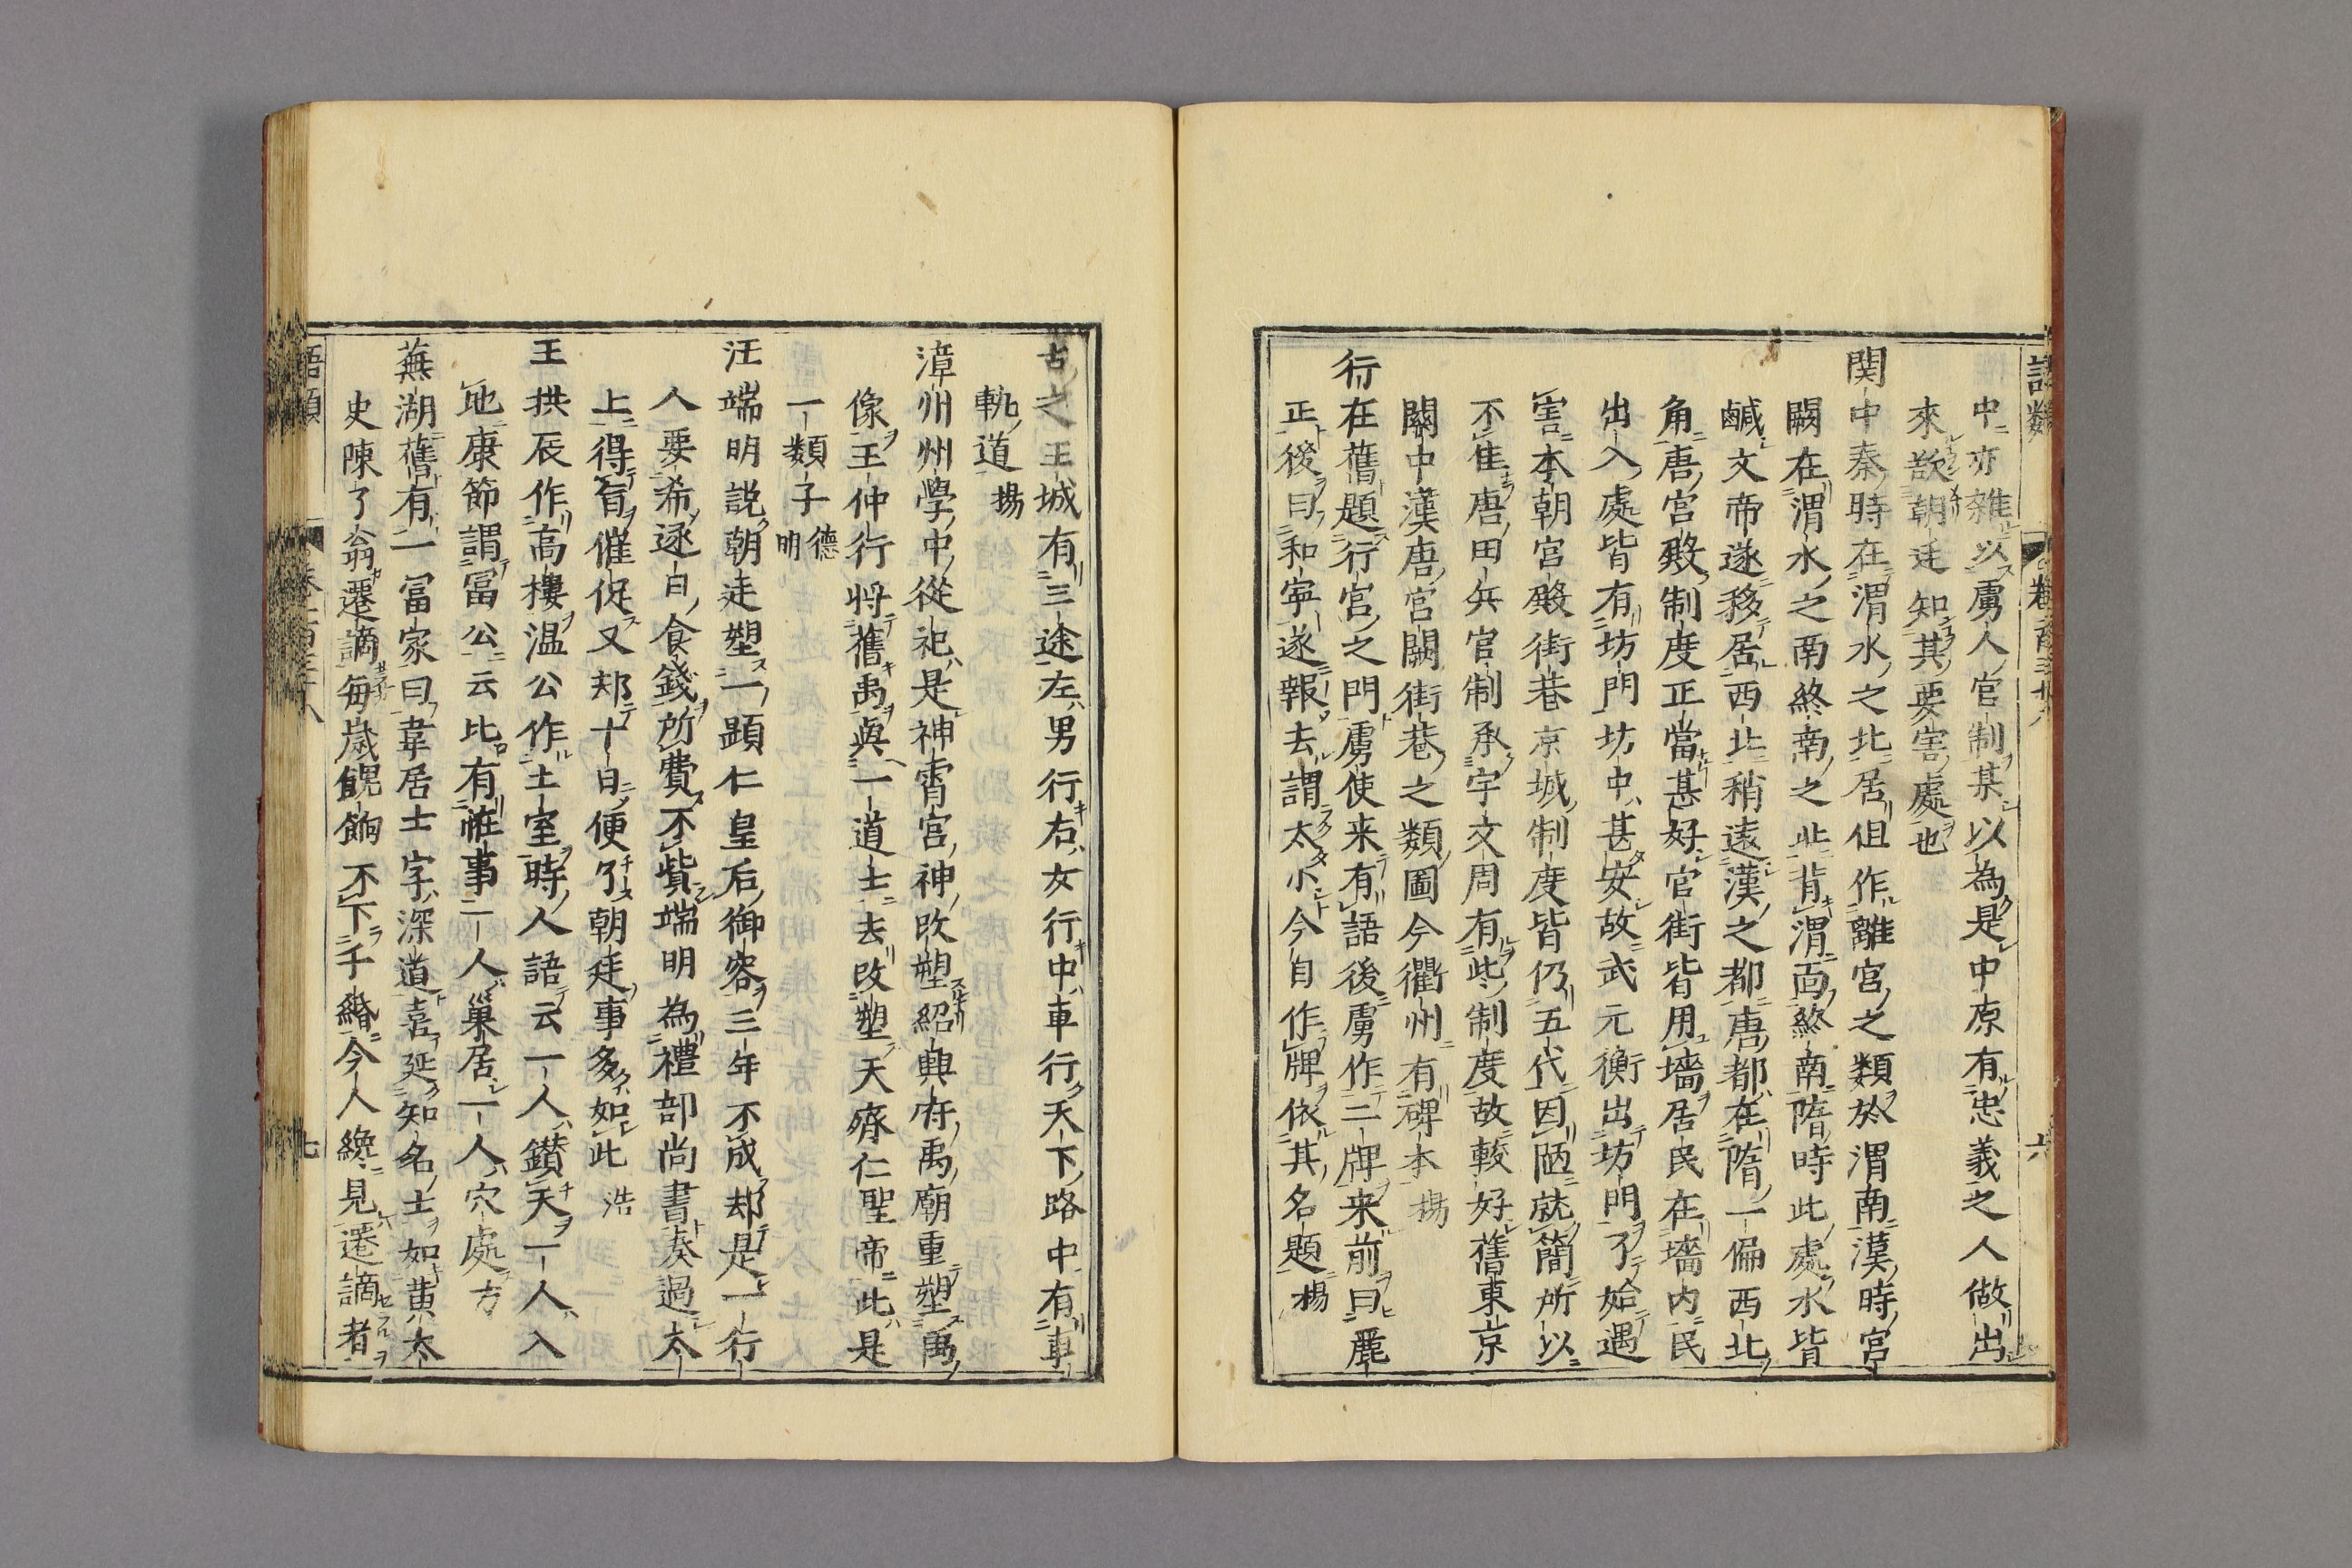 語類 卷一百三十八 六
中亦雜以虜人官制某以為是中原有忠義之人做出
來欲朝廷知其要害處也
関中秦時在渭水之北居但作離宮之類於渭南漢時宮
闕在渭水之南終南之北背渭面終南隋時此處水皆
鹹文帝遂移居西北稍遠漢之都唐都在隋一偏西北
角唐宮殿制度正當甚好官街皆用墻居民在墻内民
出入處皆有坊門坊中甚安故武元衡出坊門了始遇
害本朝宮殿街巷京城制度皆仍五代因陋就簡所以
不隹唐田兵官制承宇文周有此制度故較好舊東京
關中漢唐宮闕街巷之類圖今衢州有碑本 楊
行在舊題行宮之門虜使来有語後虜作二牌来前曰麗
正後曰和寧遂報去謂太小今自作牌依其名題 楊
古之王城有三途左男行右女行中車行天下路中有車
軌道 楊
漳州州學中從祀是神霄宮神改塑紹興府禹廟重塑禹
像王仲行将舊禹與一道士去改塑天齊仁聖帝此是
一類子 德明
汪端明説朝走塑一顕仁皇后御容三年不成却是一行
人要希逐日食錢所費不貲端明為禮部尚書奏過太
上得旨催促又却十日便了朝廷事多如此 浩
王拱辰作高樓温公作土室時人語云一人鑚天一人入
地康節謂冨公云比有恠事一人巢居一人穴處 方
蕪湖舊有一冨家曰韋居士字深道喜延知名士如黄太
史陳了翁遷謫每歳餽餉不下千緡今人纔見遷謫者
語類 卷一百三十八 七